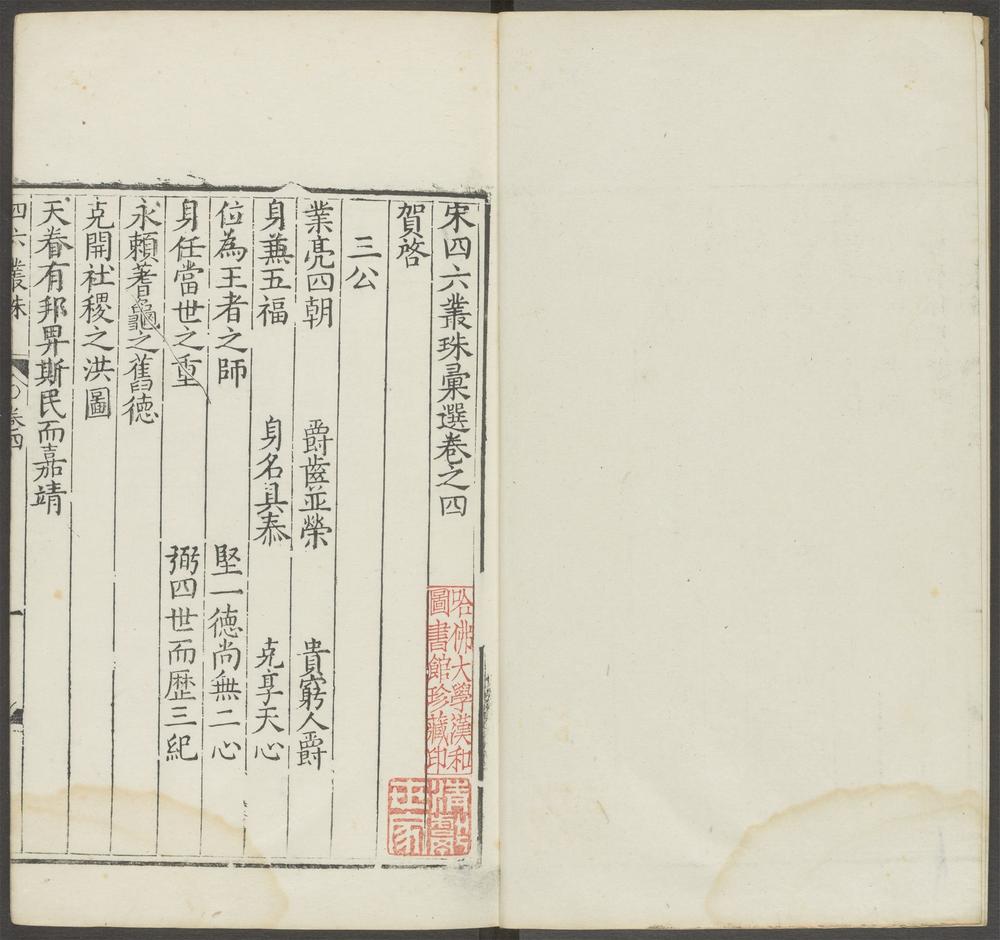 宋四六叢珠彙選卷之四
賀啓
三公
業亮四朝 爵齒並榮 貴窮人爵
身兼五福 身名具泰 克享天心
位為王者之師 堅一德尚無二心
身任當世之重 弼四世而歷三紀
永賴蓍龜之舊德
克開社稷之洪圖
天眷有邦畀斯民而嘉靖
四六叢珠 卷四 一
哈佛大學漢和
圖書館珍藏印